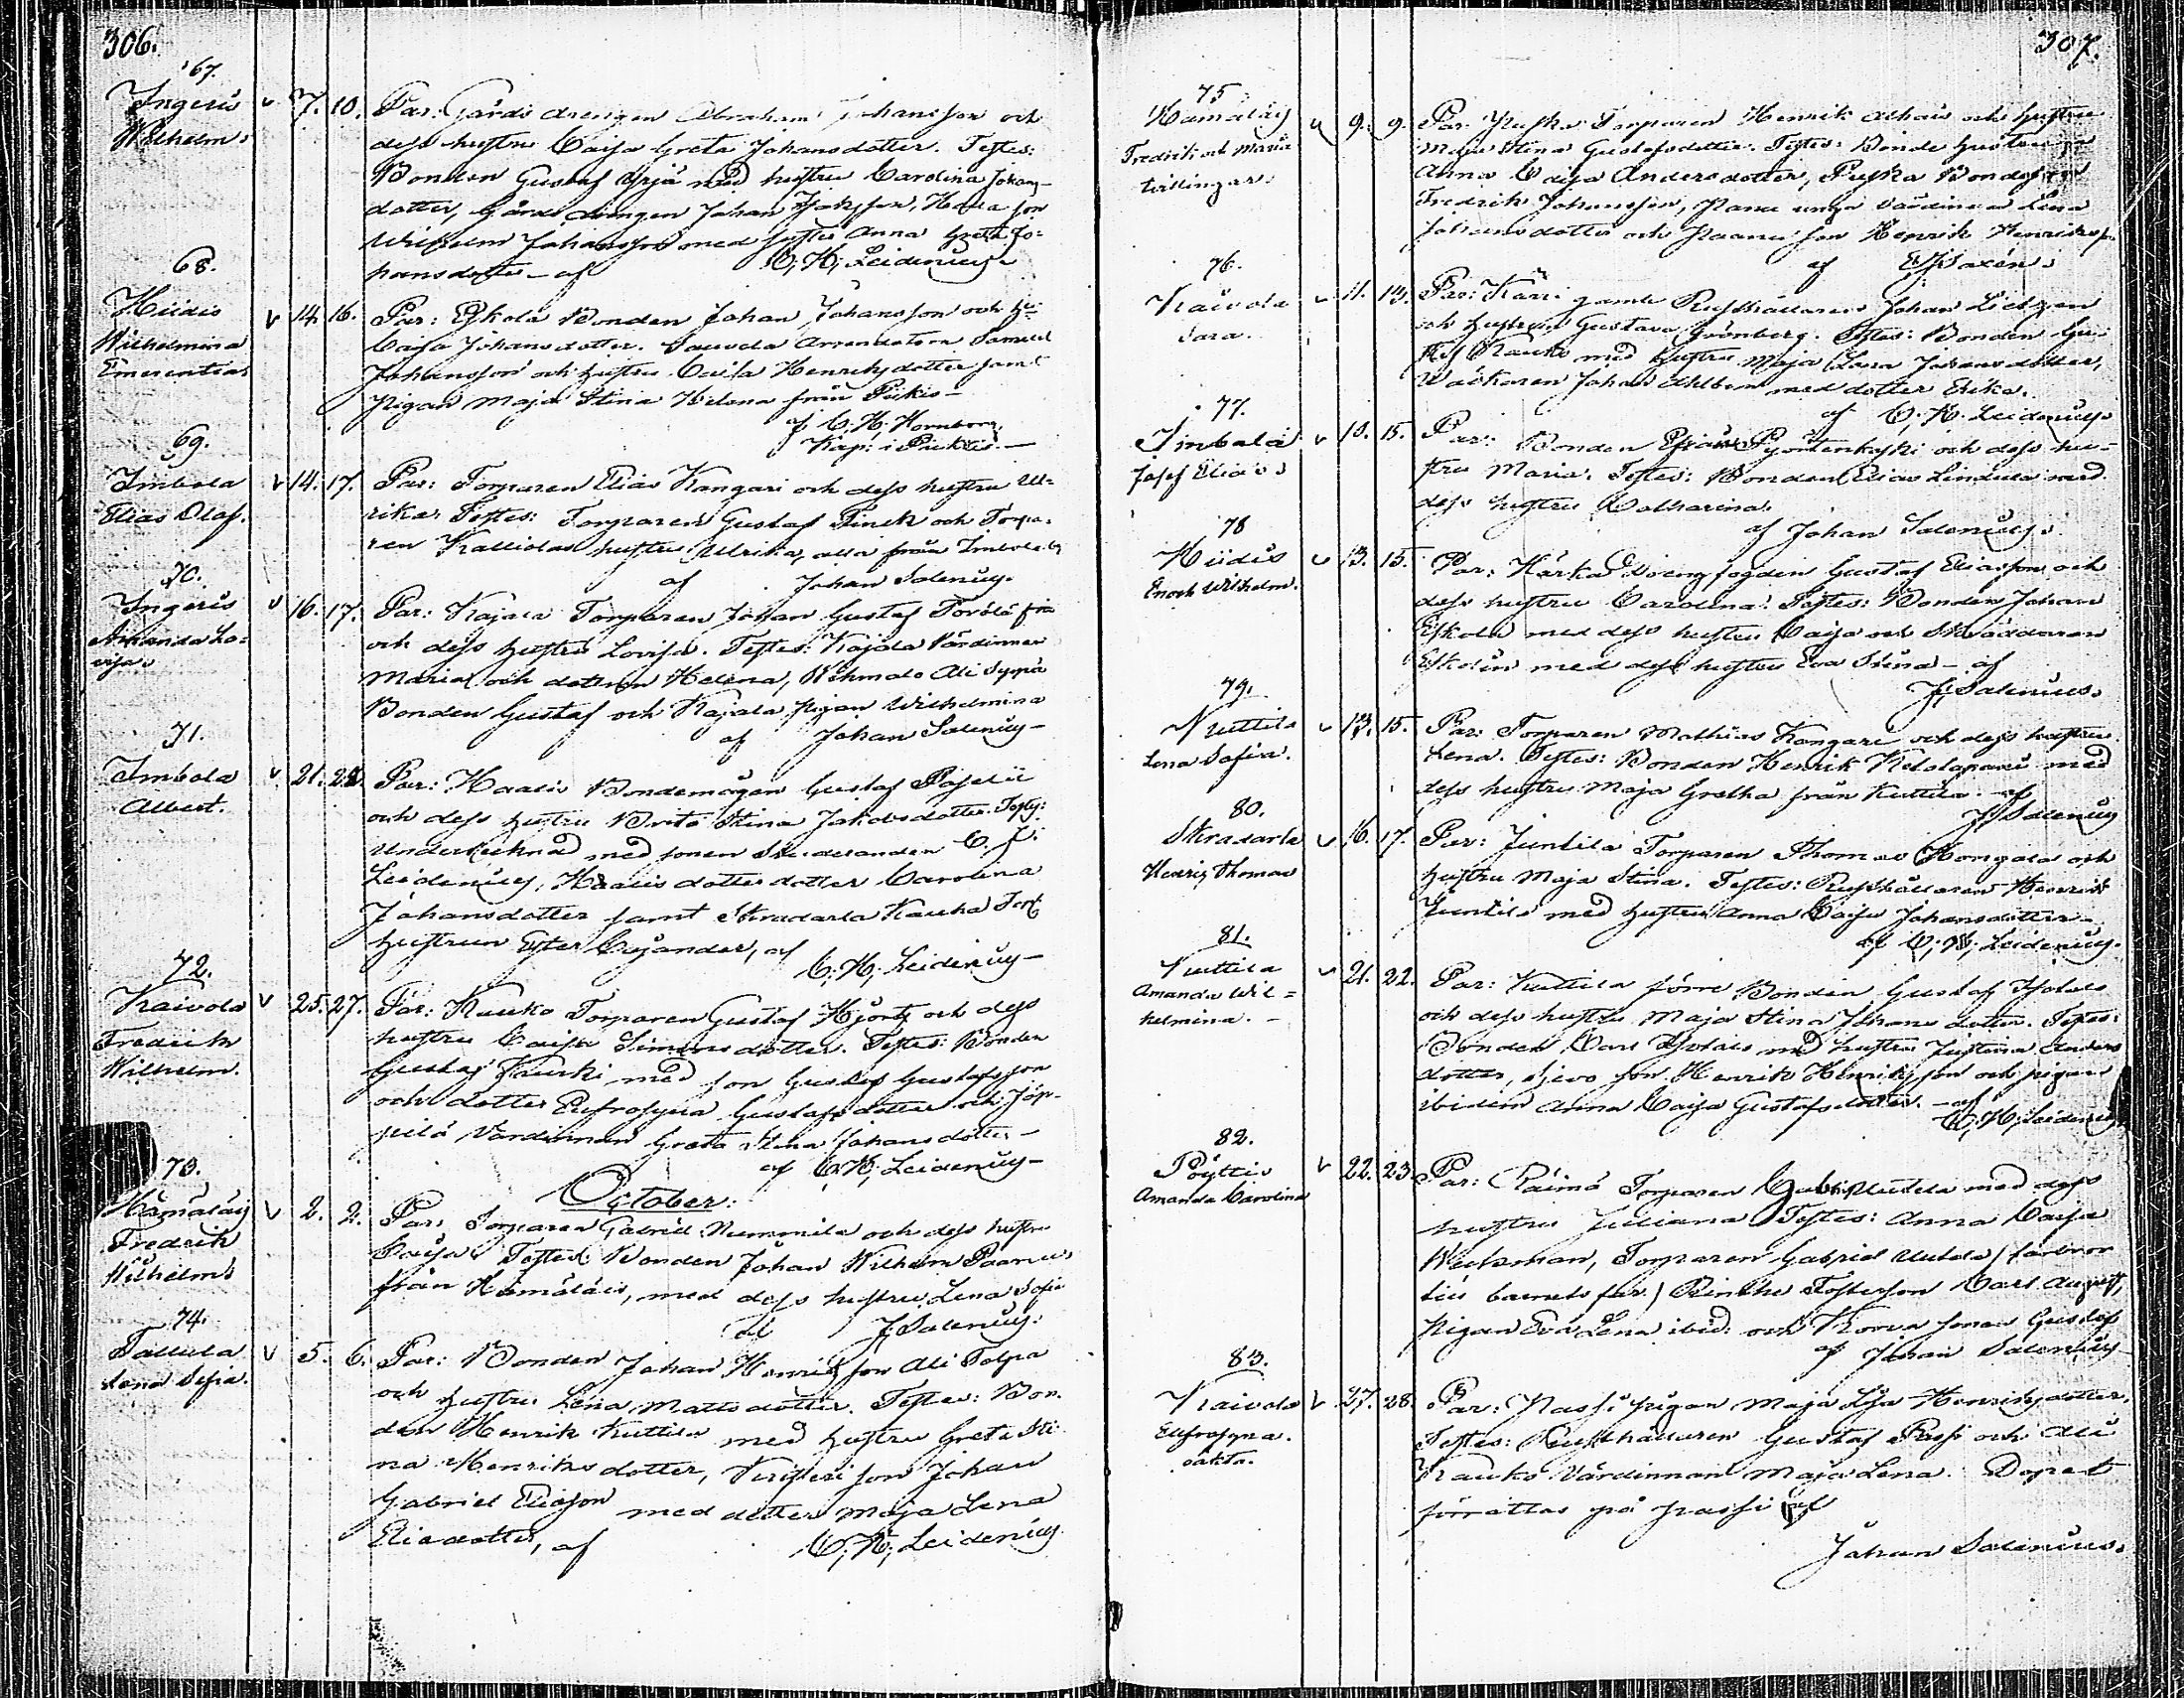 306.
67.
Ingeris v 7. 10. Par: Gårds drengen Abraham Johansson och
Wilhelm. dess hustru Caisa Greta Johansdotter. Testes:
Bonden Gustaf Yrjä med hustru Carolina Johans-
dotter, Gårds drengen Johan
Wilhelm Johansson med syster Anna Greta Jo-
hansdotter - af C. H. Leidenius
68.
Hiidis v 14. 16. Par: Eskola Bonden Johan Johansson och hu
Wilhelmina Caisa Johansdotter. Sauvola Arrendatorn Samuel
Emerentia Johansson och hustru Caisa Henriksdotter samt
pigan Maja Stina Helena från Piikis -
af C. H. Hornborg,
Kap: i Piikkis. -
69.
Imbola v 14. 17. Par: Torparen Elias Kangari och dess hustru Ul-
Elias Olaf. rika. Testes: Torparen Gustaf Finck och Torpa-
ren Kalliolas hustru Ulrika, alla från Imbola by
af Johan Salenius.
70.
Ingeris v 16. 17. Par: Kajala Torparen Johan Gustaf
Amanda Lo- och dess hustru Lovisa. Testes: Kajala Värdinnan
visa. Maria och dottren Helena, Wehmalo Ali Syppä
Bonden Gustaf och Kajala pigan Wilhelmina
af Johan Salenius -
71.
Imbola v. 21. 22. Par: Haalis Bondemågen Gustaf
Albert. och dess hustru Brita Stina Jakobsdotter. Testes:
Undertecknad med sonen Studeranden C. J.
Leidenius, Haalis dotter dotter Carolina
Johansdotter samt Skradarla Kauha Torp
hustrun Ester Cajander, af
C. H. Leidenius -
72.
Kaivola v 25. 27. Par: Kauko Torparen Gustaf Hjort och dess
Fredrik hustru Caisa Simonsdotter. Testes: Bonden
Wilhelm. Gustaf Kauki med son Gustaf Gustafsson
och dotter Eufrosyna Gustafsdotter och Jöp-
pilä Värdinnan Greta Stina Johansdotter -
af C. H. Leidenius -
October:
73.
Hämäläis v 2. 2. Par: Torparen Gabriel Nummila och dess hustru
Fredrik Caisa. Testes: Bonden Johan Wilhelm Paanu
Wilhelm. från Hämäläis, med dess hustru Lena Sofia
af J. Salenius.
74.
Tallula v 5. 6. Par: Bonden Johan Henriksson Ali Tolpa
Lena Sofia. och hustru Lena Mattsdotter. Testes: Bon-
den Henrik Kuttila med hustru Greta Sti-
na Henriksdotter, son Johan
Gabriel Eliasson med dotter Maja Lena
Eliadotter, af C. H. Leidenius
307.
75
Hämäläis v 9. 9. Par. Torparen Henrik och hustru
Fredrik och Maria Maja Stina Gustafsdotter. Testes: Bonde hustrun
tvillingar. Anna Caisa Andersdotter, Bondesonen
Fredrik Johansson, Paanu unga Värdinnan Lena
Johansdotter och Paanu son Henrik Henriksson
af E. J. Saxén.
76.
Kaivola v 11. 13. Par: Kärri gamle Rusthållaren Johan
Sara. och hustrun Gustava Grönberg. Testes: Bonden Gu-
staf Kauko med hustru Maja Lena Johansdotter,
Johan Ahlbom med dotter Erika.
af C. H. Leidenius
77.
Imbola v 10. 15. Par: Bonden Efraim och dess hu-
Josef Elias. stru Maria. Testes: Bonden Elias Lindula med
dess hustru Catharina.
af Johan Salenius.
78
Hiidis v 13. 15. Par: Härka Drengfogden Gustaf Eliasson och
Enoch Wilhelm. dess hustru Carolina. Testes: Bonden Johan
Eskola med dess hustru Caisa och Skräddaren
Eskolin med dess hustru Eva Stina - af
J. Salenius.
79.
Kuttila v 13. 15. Par: Torparen Mathias Kangari och dess hustru
Lena Sofia. Lena. Testes: Bonden Henrik med
dess hustru Maja Gretha från Kuttila. af
J. Salenius
80.
Skradarla v 16. 17. Par: Juntila Torparen Thomas Kongala och
Henrik Thomas hustru Maja Stina. Testes: Rusthållaren Henrik
Juntila med hustru Anna Caisa Johansdotter -
af C. H. Leidenius.
81.
Kuttila v 21. 22. Par: Kuttila förre Bonden Gustaf
Amanda Wil= och dess hustru Maja Stina Johansdotter. Testes:
helmina. - Bonden Carl med hustru Justina Anders
dotter, son Henrik Henriksson och pigan
ibidem Anna Caisa Gustafsdotter. - af
C. H. Leidenius
82.
Pöyttis v 22. 23. Par: Räimä Torparen Gabriel Uutela med dess
Amanda Carolina hustru Juliana. Testes: Anna Caisa
Weckman, Torparen Gabriel Uutela (
barnets far) Fosterson Carl August,
pigan Eva Lena ibid: och Korva sonen Gustaf
af Johan Salenius
83.
Kaivola v 27. 28. Par: Passi pigan Maja Lisa Henriksdotter.
Eufrosyna. Testes: Rusthållaren Gustaf Passi och Ali
oäkta. Kauko Värdinnan Maja Lena. Dopet
förrättas på Passi af
Johan Salenius.